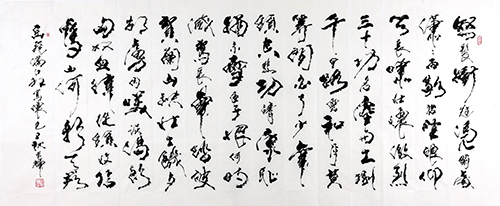 怒髮衝冠憑闌處
瀟瀟雨歇抬望眼仰
天長嘯壯懷激烈
三十功名塵與土八
千里路雲和月莫
等閒白了少年
頭空悲切靖康恥
猶未雪臣子恨何時
滅駕長車踏破
賀蘭山缺壯志飢餐
胡虜肉笑談渴飲
匈奴血待從頭收拾
舊山河朝天闕
岳飛滿江紅